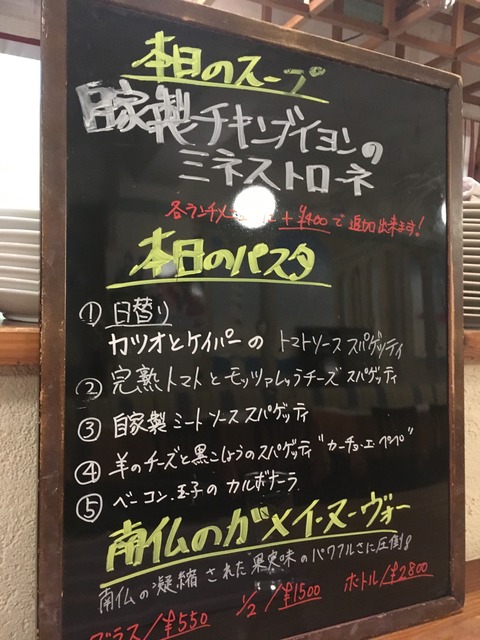 本日のスープ
自家製チキンブイヨンの
ミネストローネ
各ランチメニューに+¥400で追加出来ます!
本日のパスタ
① 日替り
カツオとケイパーの トマトソース スパゲッティ
② 完熟トマトとモッツァレッラチーズ スパゲッティ
③ 自家製 ミートソース スパゲッティ
④ 羊のチーズと黒こしょうのスパゲッティ "カーチョ・エ・ペペ"
⑤ ベーコン、玉子の カルボナーラ
南仏のガメイ・ヌーヴォー
南仏の凝縮された果実味のパワフルさに圧倒!
グラス/¥550 1/2/¥1500 ボトル/¥2800